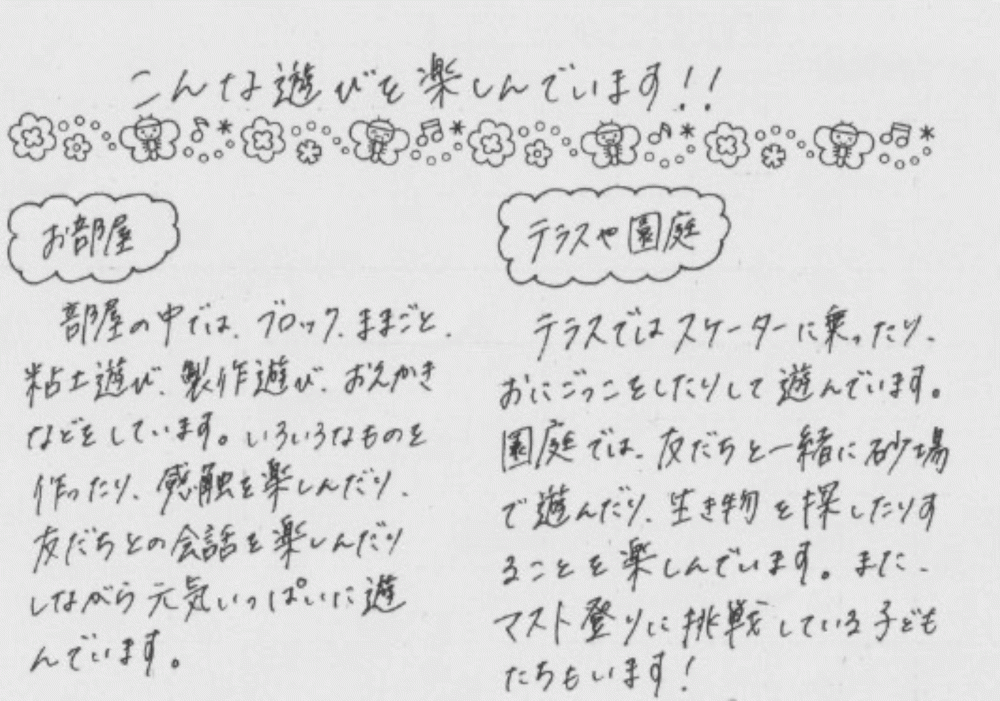 こんな遊びを楽しんでいます!!
お部屋
部屋の中では、ブロック、ままごと、
粘土遊び、製作遊び、おえかき
などをしています。いろいろなものを
作ったり、感触を楽しんだり、
友だちとの会話を楽しんだり
しながら元気いっぱいに遊
んでいます。
テラスや園庭
テラスではスケーターに乗ったり、
おにごっこをしたりして遊んでいます。
園庭では、友だちと一緒に砂場
で遊んだり、生き物を探したりす
ることを楽しんでいます。また、
マスト登りに挑戦している子ども
たちもいます!